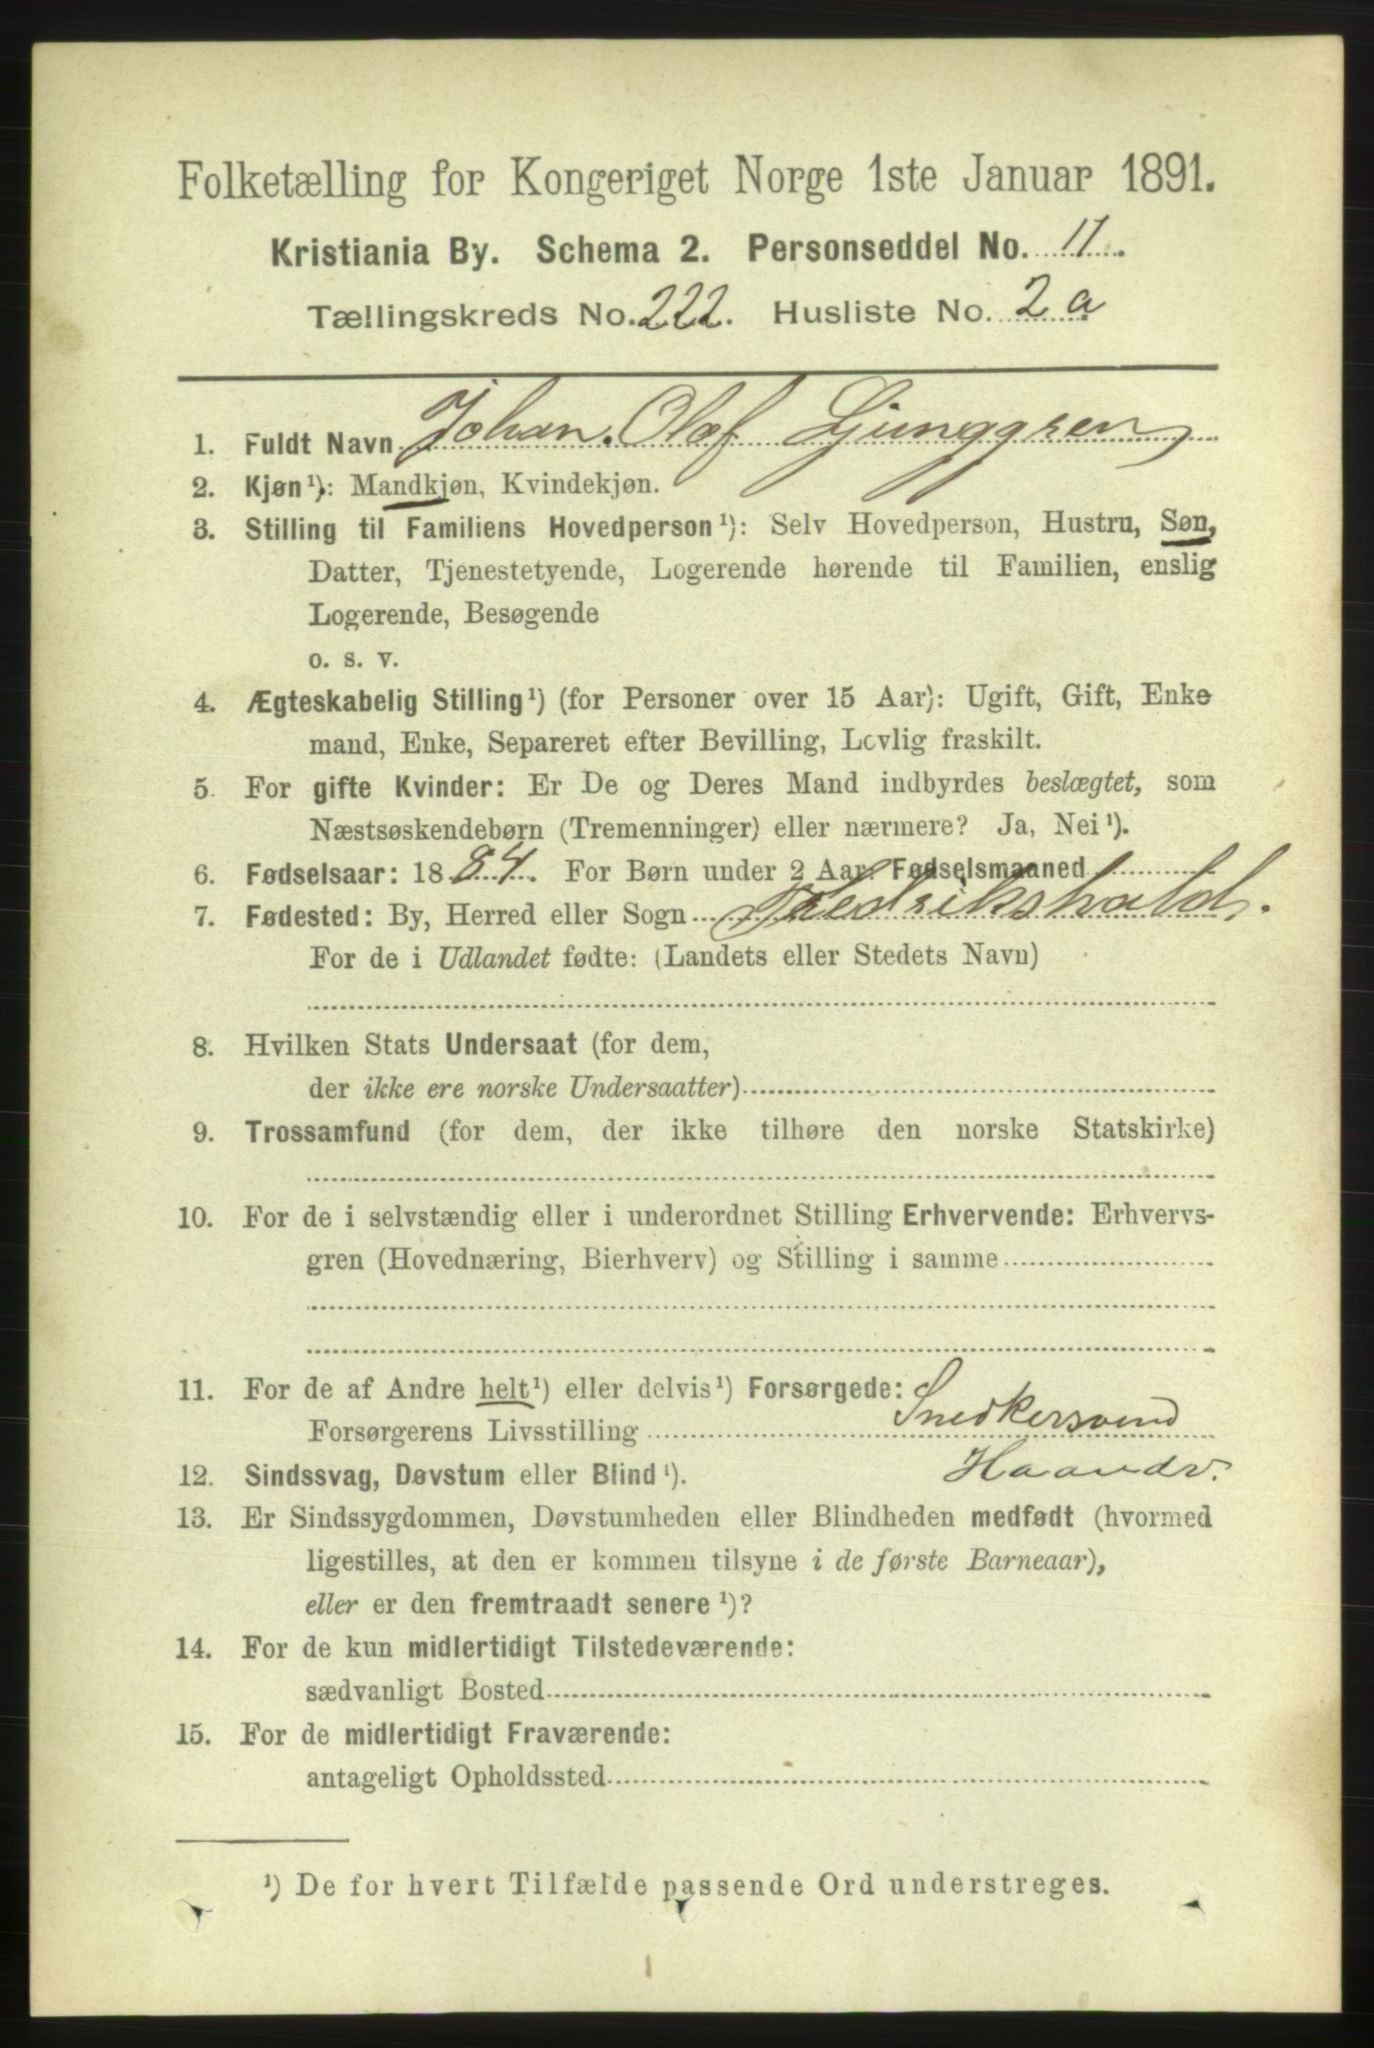 Folketælling for Kongeriget Norge 1ste Januar 1891.
Kristiania By. Schema 2. Personseddel No. 11.
Tællingskreds No. 222. Husliste No. 2 a
1. Fuldt Navn Johan Olof Ljunggren
2. Kjøn¹): Mandkjøn, Kvindekjøn.
3. Stilling til Familiens Hovedperson¹): Selv Hovedperson, Hustru, Søn,
Datter, Tjenestetyende, Logerende hørende til Familien, enslig
Logerende, Besøgende
o. s. v.
4. Ægteskabelig Stilling¹) (for Personer over 15 Aar): Ugift, Gift, Enke
mand, Enke, Separeret efter Bevilling, Lovlig fraskilt.
5. For gifte Kvinder: Er De og Deres Mand indbyrdes beslægtet, som
Næstsøskendebørn (Tremenninger) eller nærmere? Ja, Nei¹).
6. Fødselsaar: 1884. For Børn under 2 Aar. Fødselsmaaned
7. Fødested: By, Herred eller Sogn Fredrikshald.
For de i Udlandet fødte: (Landets eller Stedets Navn)
8. Hvilken Stats Undersaat (for dem,
der ikke ere norske Undersaatter)
9. Trossamfund (for dem, der ikke tilhøre den norske Statskirke)
10. For de i selvstændig eller i underordnet Stilling Erhvervende: Erhvervs-
gren (Hovednæring, Bierhverv) og Stilling i samme
11. For de af Andre helt¹) eller delvis¹) Forsørgede:
Forsørgerens Livsstilling Snedkersvend
12. Sindssvag, Døvstum eller Blind¹). Haandv.
13. Er Sindssygdommen, Døvstumheden eller Blindheden medfødt (hvormed
ligestilles, at den er kommen tilsyne i de første Barneaar),
eller er den fremtraadt senere¹)?
14. For de kun midlertidigt Tilstedeværende:
sædvanligt Bosted
15. For de midlertidigt Fraværende:
antageligt Opholdssted
¹) De for hvert Tilfælde passende Ord understreges.